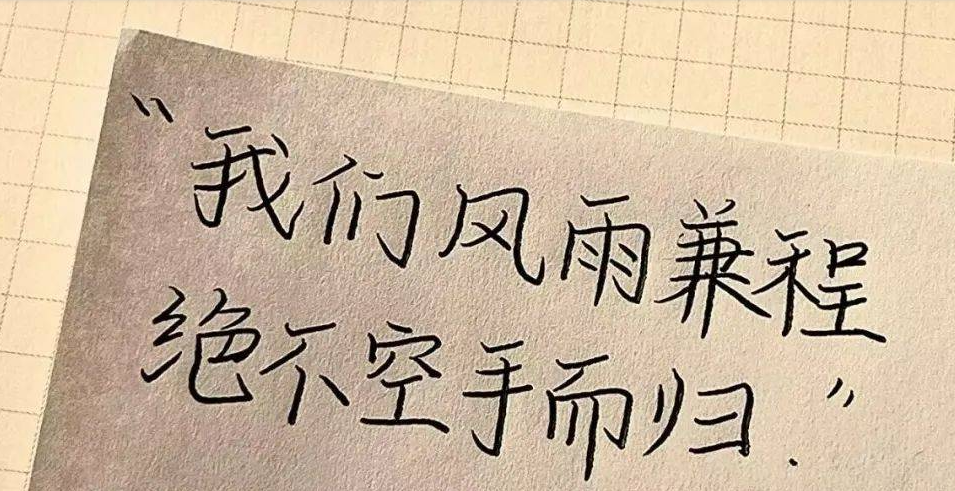 “我们风雨兼程
绝不空手而归.”